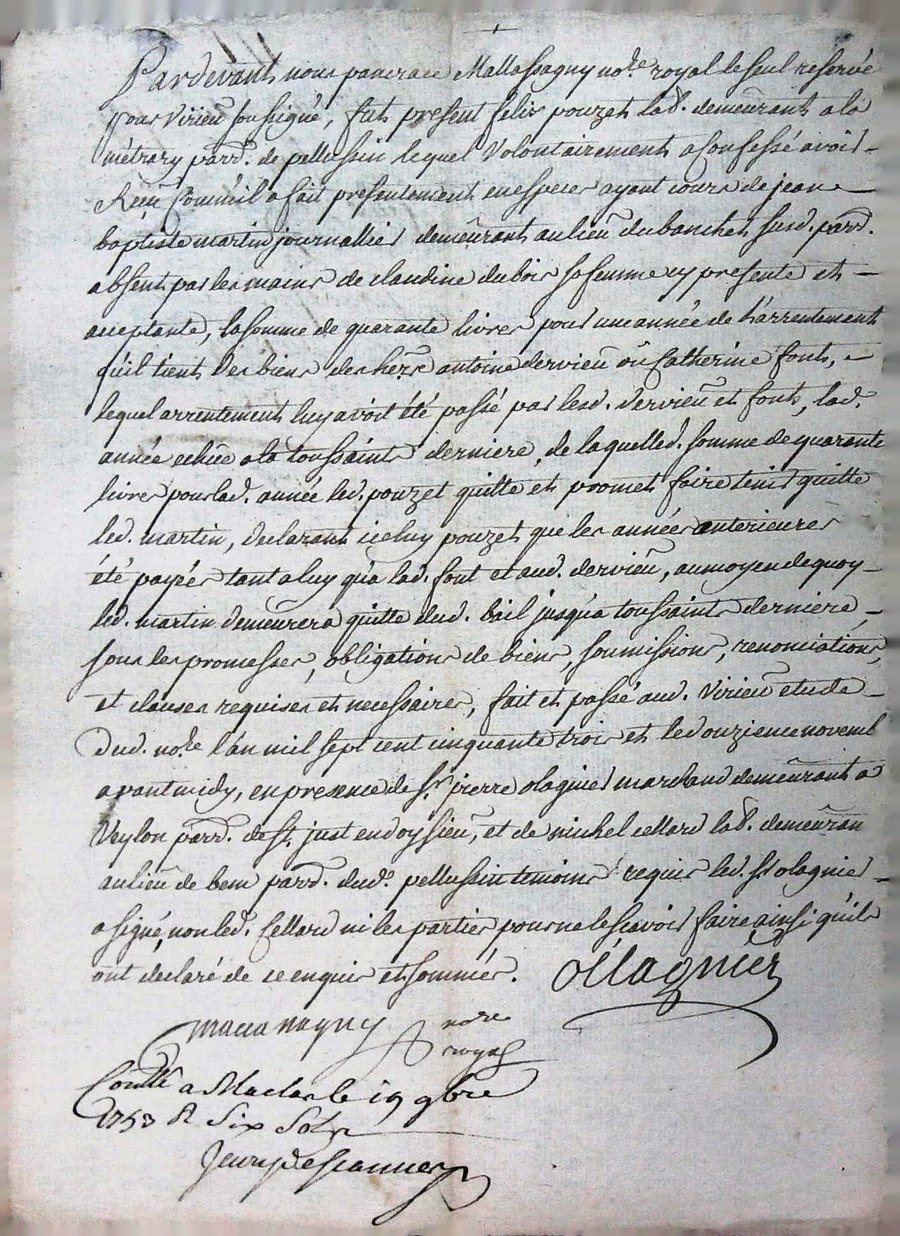 Pardevant nous pancrace Mallassagny no.re royal le seul reservé
pour Virieu soussigné, fut present felix pouzet lab.r demeurant a la
métrary parr. de pellussin lequel volontairement a confessé avoir
Reçu comme il a fait presentement en especes ayant cours de jean
baptiste martin journallier demeurant au lieu du banchet susd. parr.
absent par les mains de claudine dubois sa femme cy presente et
acceptante, la somme de quarante livres pour une année de l'arrentement
qu'il tient des biens des hers antoine dervieu ou Catherine font,
lequel arrentement luy avoit été passé par lesd. dervieu et font, lad.
année echue a la toussaint derniere, de laquelled. somme de quarante
livres pour lad. année led. pouzet quitte et promet faire tenir quitte
led. martin, declarant iceluy pouzet que les années anterieures
été payées tant a luy qu'a lad. font et aud. dervieu, au moyen de quoy
led. martin demeurera quitte dud. bail jusqu'a toussaint derniere,
sous les promesses, obligations de biens, soumissions, renonciations,
et clauses requises et necessaire, fait et passé aud. Virieu etude
Dud. no.re l'an mil sept cent cinquante trois et le douzieme novemb
avant midy, en presence de S.r pierre olagnier marchand demeurant a
Veylon parr. de St. just en doyzieu, et de michel cellard lab.r demeuran
au lieu de bem parr. dud. pellussin temoins requis led. Sr olagnier
a signé, non led. Cellard ni les parties pour ne le scavoir faire ainsi qu'ils
ont declaré de ce enquis et sommés. Ollagnier
Mallassagny no.re
royal
Conllé a Maclas le 19 9bre
1753 R Six Sols